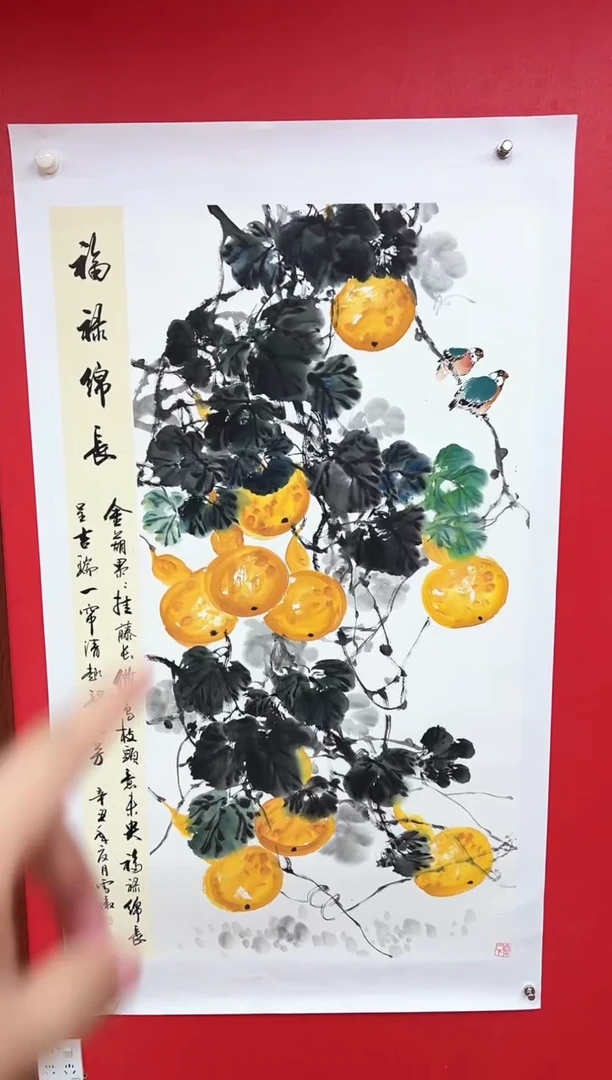 福禄绵長
金葫累:挂藤长鸟枝頭意未央福禄绵長
呈吉瑞一帘清趣芳 辛丑年夏月雪